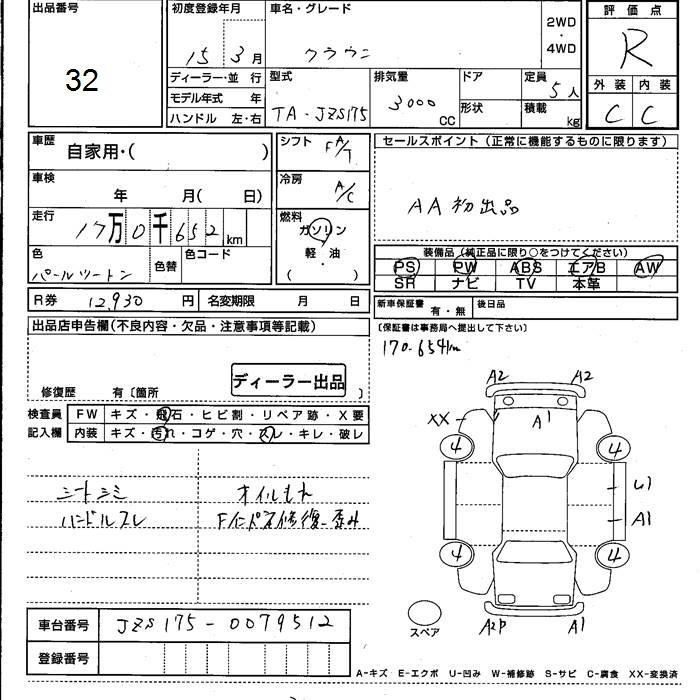 出品番号
32
初度登録年月
15 3月
車名・グレード
クラウン
2WD
・
4WD
評価点
R
外装 内装
C C
ディーラー・並行
モデル年式 年
ハンドル 左・右
型式
TA-JZS175
排気量
3000
CC
ドア
形状
定員
5人
積載
kg
車歴
自家用・( )
シフト
FA/T
セールスポイント（正常に機能するものに限ります）
AA初出品
車検
年 月( 日)
冷房
A/C
走行
17万0千652km
燃料
ガソリン
軽・油
・
( )
色
パールツートン
色替
色コード
装備品（純正品に限り○をつけてください）
PS PW ABS エアB AW
SR ナビ TV 本革
R券 12,930 円
名変期限 月 日
新車保証書
有・無
後日品
（保証書は事務局へ提出して下さい）
170.654km
出品店申告欄(不良内容・欠品・注意事項等記載)
ディーラー出品
修復歴 有〔箇所 〕
検査員
記入欄
FW キズ・飛石・ヒビ割・リペア跡・X要
内装 キズ・汚れ・コゲ・穴・スレ・キレ・破レ
シートシミ
オイルもれ
ハンドルスレ
Fインパネ修復_歪み
A2 A2
XX A1
4 4
U1
A1
4 4
スペア
A2P A1
車台番号 JZS175-0079512
登録番号
A-キズ E-エクボ U-凹み W-補修跡 S-サビ C-腐食 XX-変換済